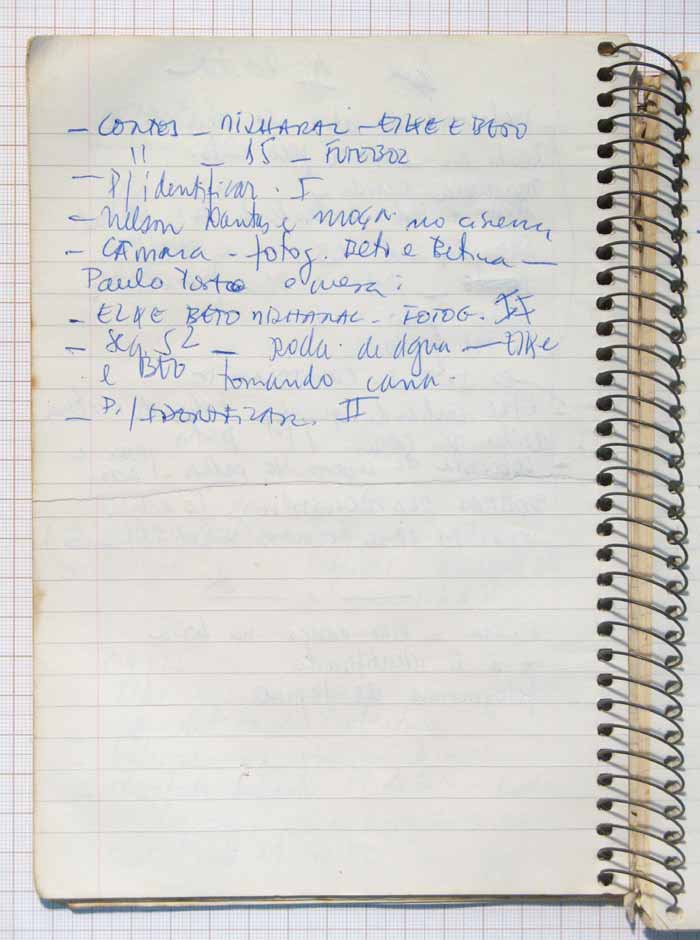 – CORTES – MISHARAL – ELKE E BETO
" – 15 – FUTEBOL
– P/ identificar. I
– Nelson Dantas e moça no cinema
– CÂMARA – fotog. Beto e Betina –
Paulo mesa:
– ELKE BETO MISHARAL – FOTOG. II
– Seq. 52 – Roda de água – Elke
e BETO tomando cana.
– P./IDENTIFICAR. II